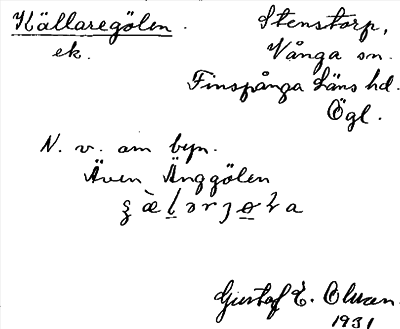 Källaregölen.
ek.
Stenstorp,
Vånga sn.
Finspånga läns hd.
Ögl.
N. v. om byn.
Även Änggölen
Gustaf E. Olsson.
1931